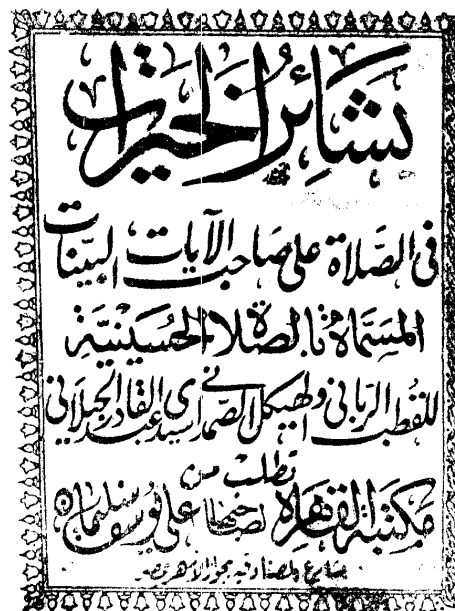 بشائر الخيرات
في الصلاة على صاحب الآيات البينات
المسماة بالصلاة الحسينية
للقطب الرباني والهيكل الصمداني سيدي عبد القادر الجيلاني
تطلب من
مكتبة القاهرة لصاحبها علي يوسف سليمان
بشارع الصنادقية بجوار الأزهر بمصر